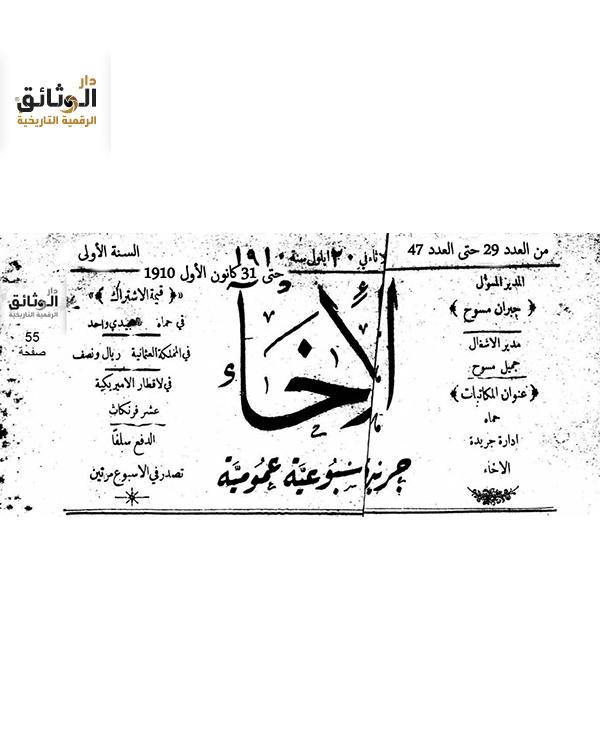 دار
الوثائق
الرقمية التاريخية
من العدد 29 حتى العدد 47
ثاء في ٢٠ ايلول سنة ١٩١٠
حتى 31 كانون الأول 1910
السنة الأولى
المدير المسؤل
﴿ جبران مسوح ﴾
مدير الاشغال
جميل مسوح
﴿ عنوان المكاتبات ﴾
حماه
ادارة جريدة
الاخاء
الإخاء
١٣٢٦
جريدة اسبوعية عمومية
﴿ قيمة الاشتراك ﴾
في حماه مجيدي واحد
في المملكة العثمانية ريال ونصف
في لاقطار الاميريكية
عشر فرنكات
الدفع سلفًا
تصدر في الاسبوع مرتين
دار
الوثائق
الرقمية التاريخية
55
صفحة